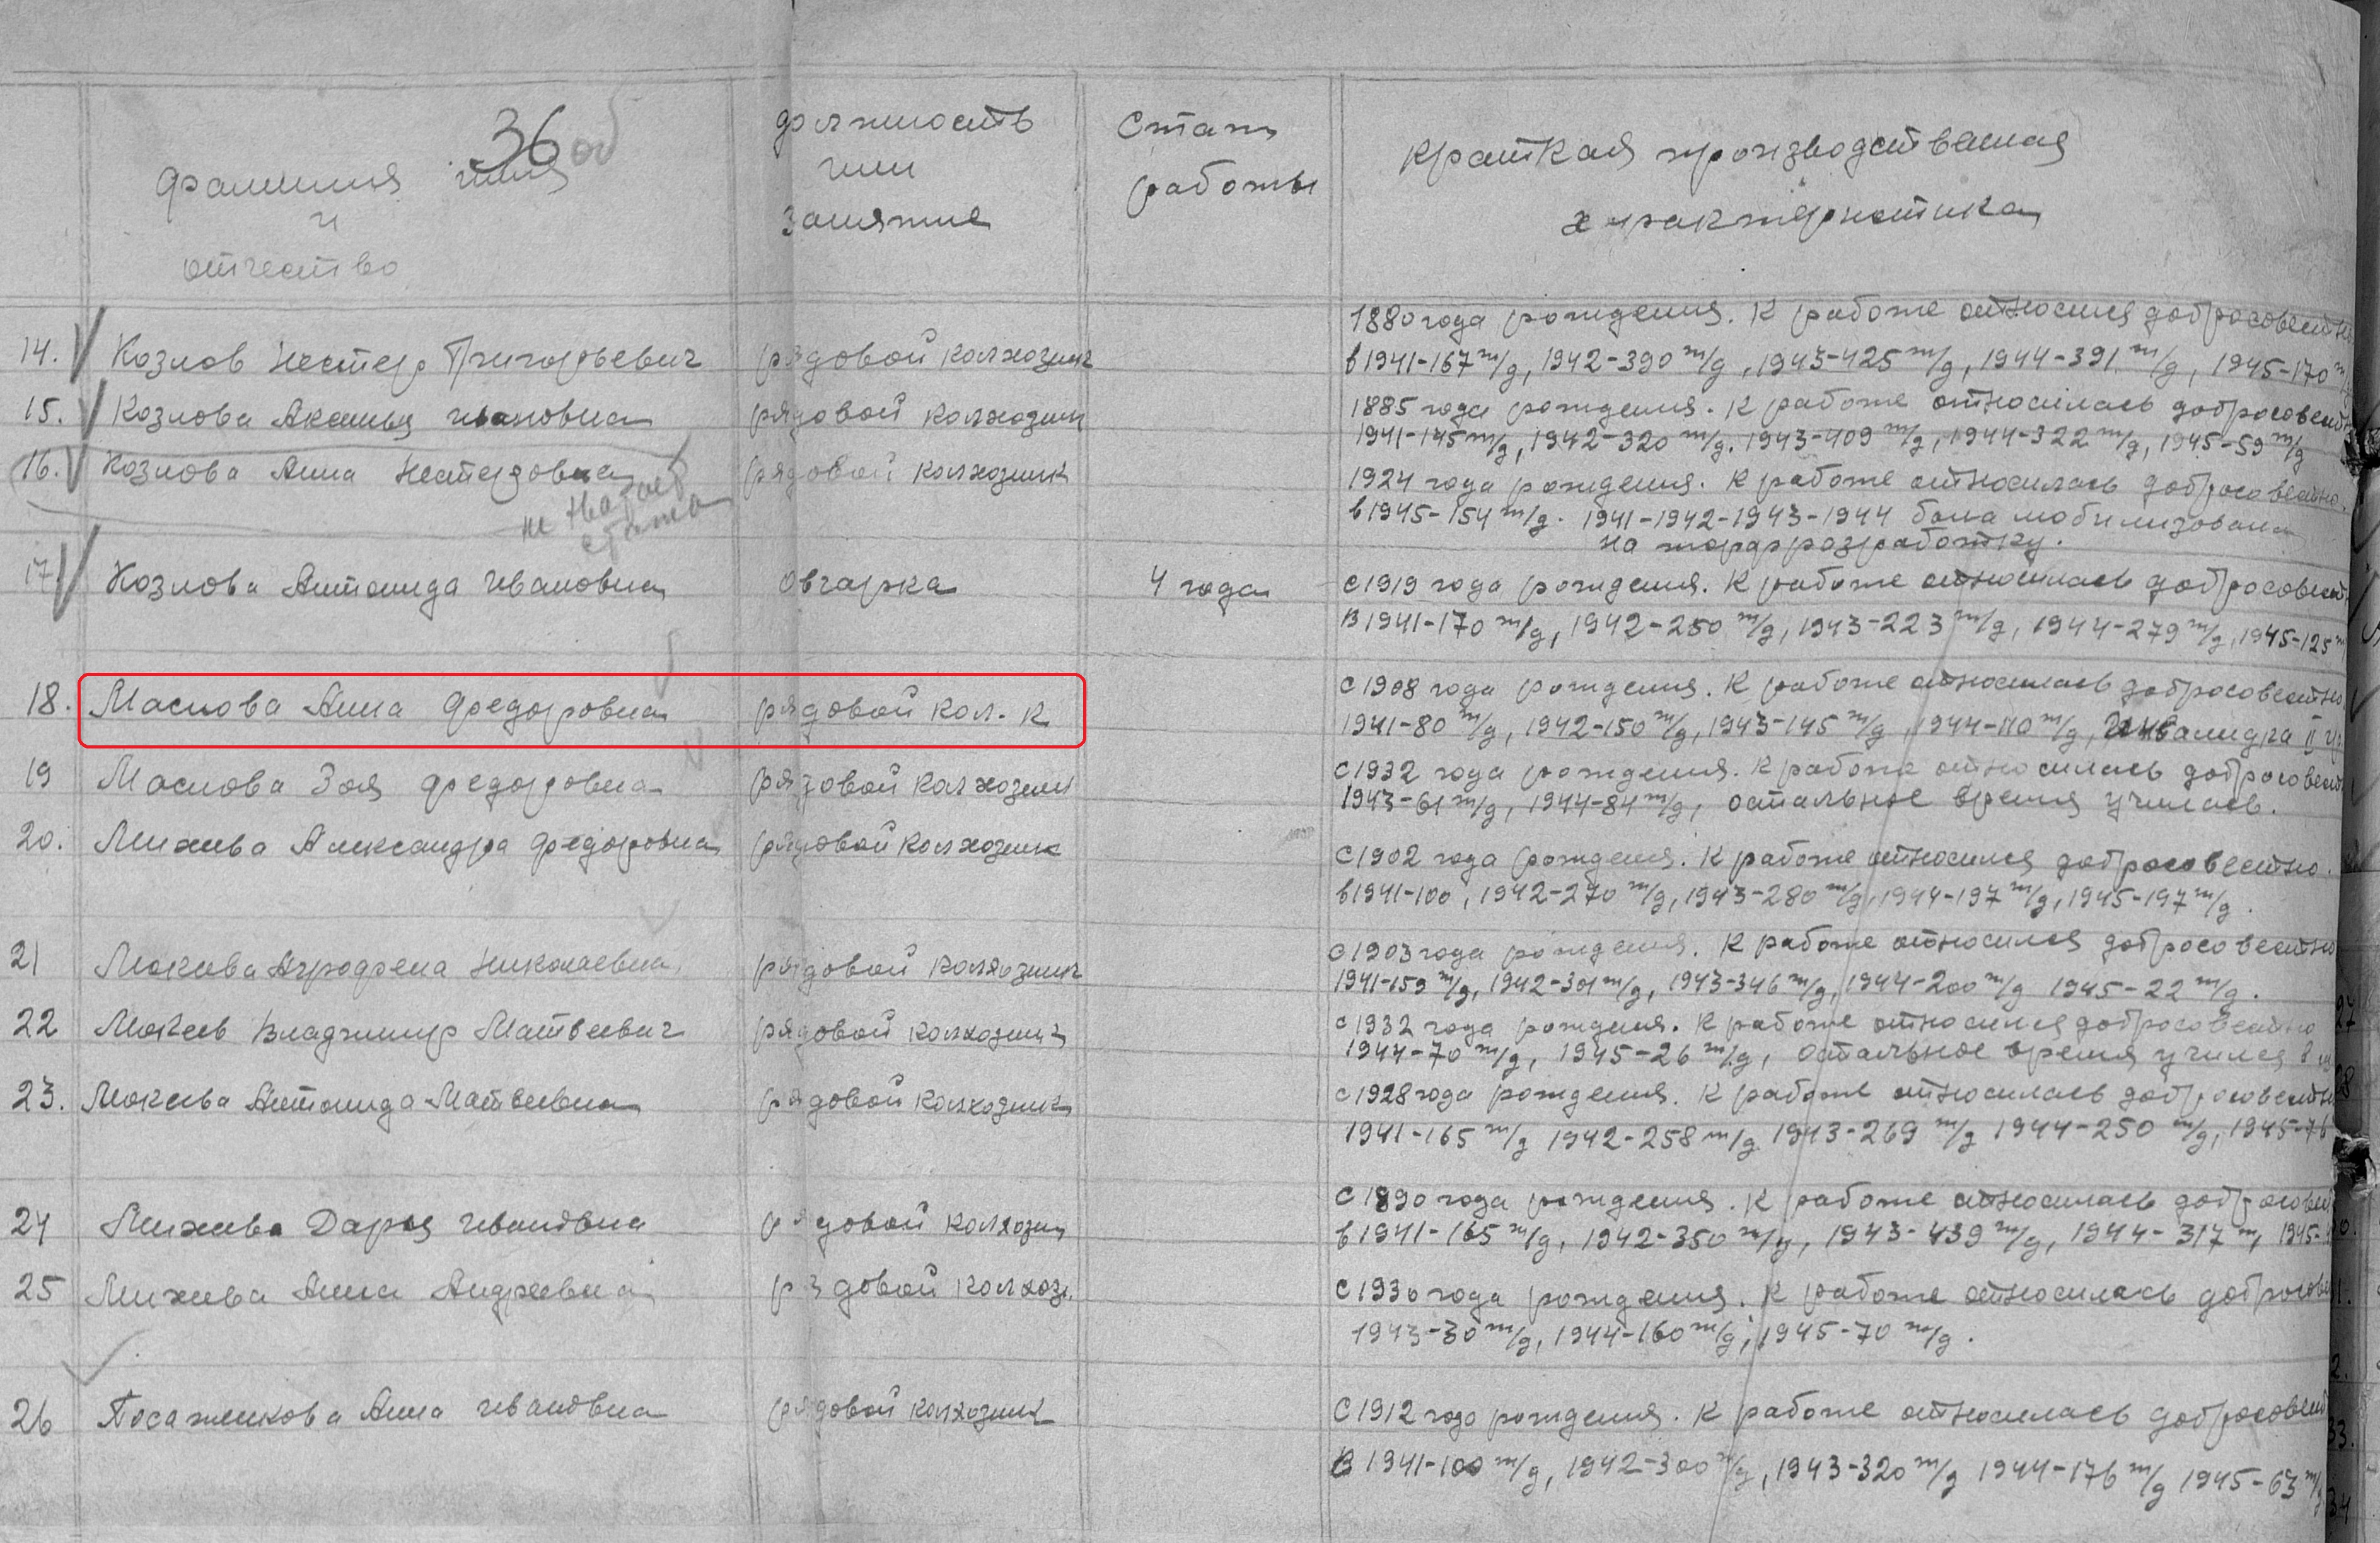 36 об
фамилия имя
и
отчество
должность
или
занятие
Стаж
работы
краткая производственная
характеристика
14. Козлов Нестер Григорьевич рядовой колхозник
1880 года рождения. К работе относился добросовестно
в 1941-167 т/д, 1942-390 т/д, 1943-425 т/д, 1944-391 т/д, 1945-170
15. Козлова Аксинья Ивановна рядовой колхозник
1885 года рождения. К работе относилась добросовестн
1941-145 т/д, 1942-320 т/д. 1943-409 т/д, 1944-322 т/д, 1945-59 т/д
16. Козлова Анна Нестеровна рядовой колхозник
не
стажа
1924 года рождения. К работе относилась добросовестно.
в 1945-154 т/д. 1941-1942-1943-1944 была мобилизована
на торфразработку.
17. Козлова Антонида Ивановна Овчарка 4 года
с 1919 года рождения. К работе относилась добросовест
В 1941-170 т/д, 1942-250 т/д, 1943-223 т/д, 1944-279 т/д, 1945-125 т
18. Маслова Анна Федоровна рядовой кол-к
с 1908 года рождения. К работе относилась добросовестно
1941-80 т/д, 1942-150 т/д, 1943-145 т/д, 1944-110 т/д, Инвалидка II гр
19 Маслова Зоя Федоровна рядовой колхозник
с 1932 года рождения. К работе относилась добросовест
1943-61 т/д, 1944-84 т/д, остальное время училась.
20. Михева Александра Федоровна рядовой колхозник
с 1902 года рождения. К работе относился добросовестно.
в 1941-100, 1942-270 т/д, 1943-280 т/д, 1944-197 т/д, 1945-197 т/д.
21 Мокева Николаевна рядовой колхозник
с 1903 года рождения. К работе относился добросовестно
1941-159 т/д, 1942-301 т/д, 1943-346 т/д, 1944-200 т/д 1945-22 т/д.
22 Мокеев Владимир Матвеевич рядовой колхозник
с 1932 года рождения. К работе относился добросовестно
1944-70 т/д, 1945-26 т/д, остальное время учился в
23. Мокеева Антонида Матвеевна рядовой колхозник
с 1928 года рождения. К работе относилась добросовестн
1941-165 т/д 1942-258 т/д 1943-269 т/д 1944-250 т/д, 1945-76
24 Михева Дарья Ивановна рядовой колхозн
с 1890 года рождения. К работе относилась добросовест
в 1941-165 т/д, 1942-350 т/д, 1943-439 т/д, 1944-317 т, 1945-
25 Михева Анна Андреевна рядовой колхоз.
с 1930 года рождения. К работе относилась добросове
1943-30 т/д, 1944-160 т/д, 1945-70 т/д.
26 Посаженкова Анна Ивановна рядовой колхозник
С 1912 года рождения. К работе относилась добросовест
В 1941-100 т/д, 1942-300 т/д, 1943-320 т/д 1944-176 т/д 1945-63 т/д